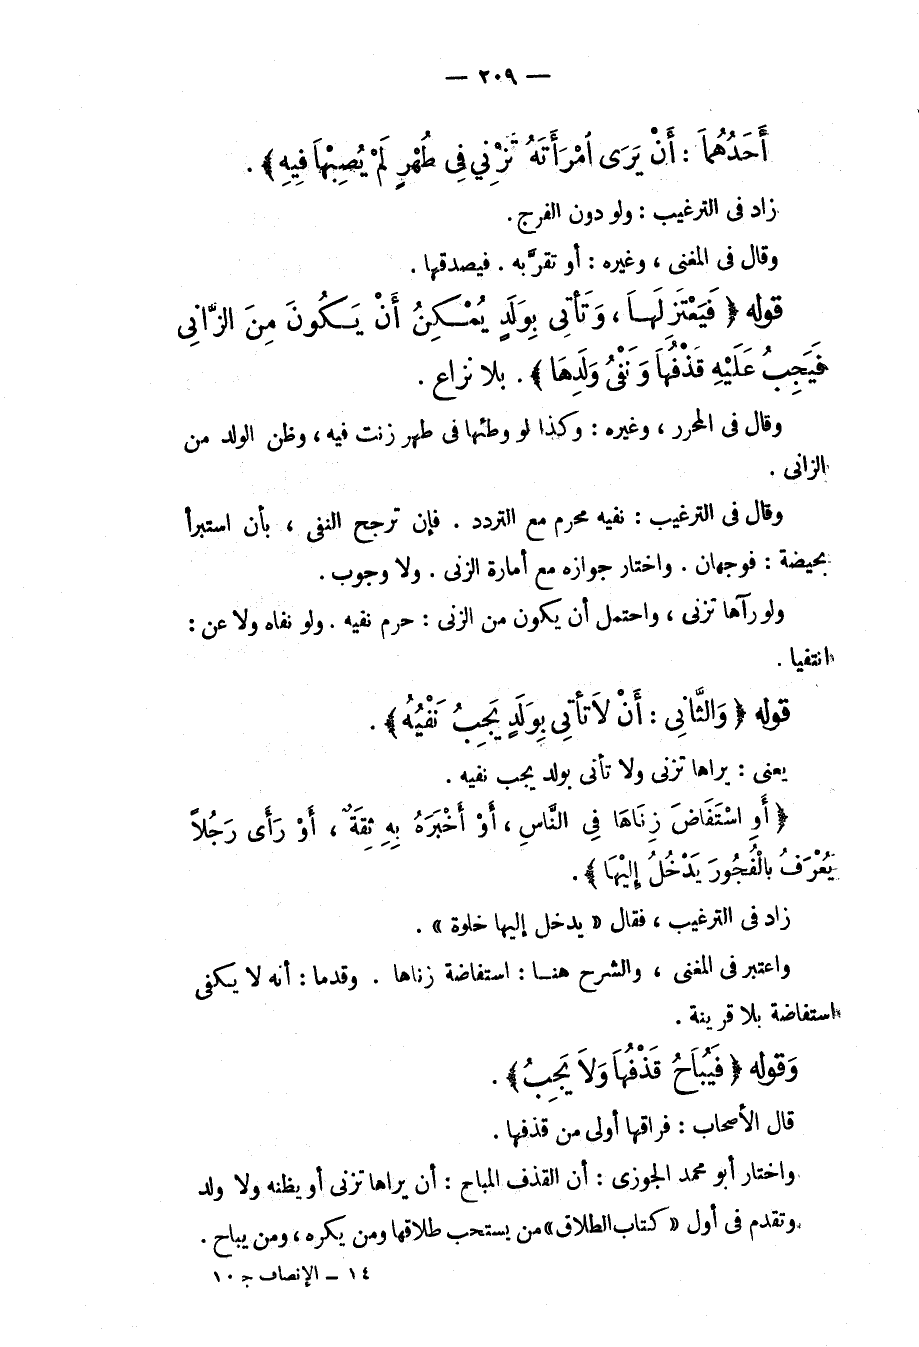 — ٢٠٩ —
أَحَدُهُمَا : أَنْ يَرَى امْرَأَتَهُ تَزْنِي فِى طُهْرٍ لَمْ يُصِبْهَا فِيهِ ﴾ .
زاد فى الترغيب : ولو دون الفرج .
وقال فى المغنى ، وغيره : أو تقرَّ به . فيصدقها .
قوله ﴿ فَيَعْتَزِلَهَا ، وَتَأتِى بِوَلَدٍ يُمْكِنُ أَنْ يَكُونَ مِنَ الزَّانِى
فَيَجِبُ عَلَيْهِ قَذْفُهَا وَنَفْىُ وَلَدِهَا ﴾ . بلا نزاع .
وقال فى المحرر ، وغيره : وكذا لو وطئها فى طهر زنت فيه ، وظن الولد من
الزانى .
وقال فى الترغيب : نفيه محرم مع التردد . فإن ترجح النفى ، بأن استبرأ
بحيضة : فوجهان . واختار جوازه مع أمارة الزنى . ولا وجوب .
ولو رآها تزنى ، واحتمل أن يكون من الزنى : حرم نفيه . ولو نفاه ولا عن :
انتفيا .
قوله ﴿ وَالثَّانِى : أَنْ لاَ تَأتِى بِوَلَدٍ يَجِبُ نَفْيُهُ ﴾ .
يعنى : يراها تزنى ولا تأتى بولد يجب نفيه .
﴿ أَوِ اسْتَفَاضَ زِنَاهَا فِى النَّاسِ ، أَوْ أَخْبَرَهُ بِهِ ثِقَةٌ ، أَوْ رَأَى رَجُلاً
يُعْرَفُ بِالْفُجُورَ يَدْخُلُ إِلَيْهَا ﴾ .
زاد فى الترغيب ، فقال « يدخل إليها خلوة » .
واعتبر فى المغنى ، والشرح هنا : استفاضة زناها . وقدما : أنه لا يكفى
استفاضة بلا قرينة .
وَقوله ﴿ فَيُبَاحُ قَذْفُهَا وَلاَ يَجِبُ ﴾ .
قال الأصحاب : فراقها أولى من قذفها .
واختار أبو محمد الجوزى : أن القذف المباح : أن يراها تزنى أو يظنه ولا ولد
وتقدم فى أول « كتاب الطلاق » من يستحب طلاقها ومن يكره ، ومن يباح .
١٤ – الإنصاف ج ١٠